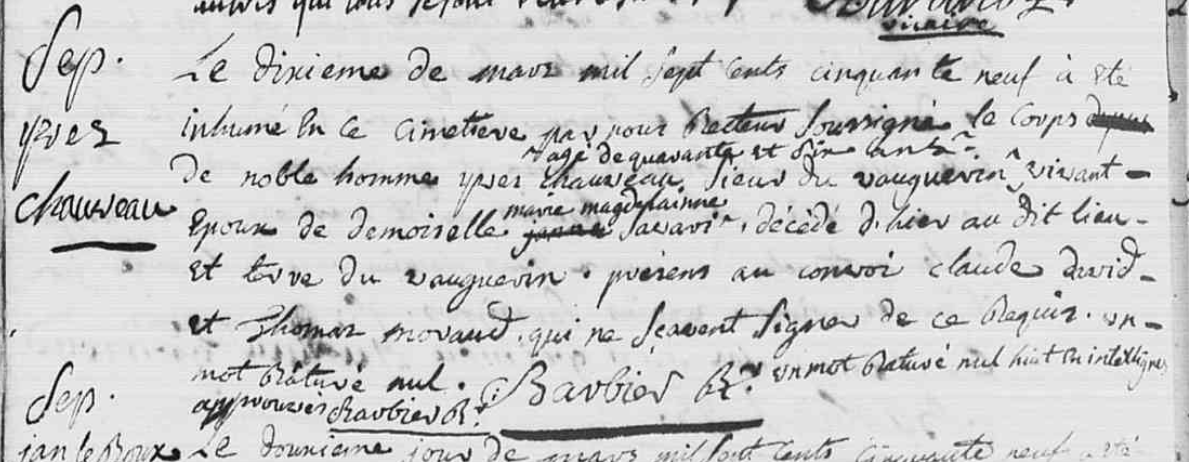 vicaire
Sep.
yvez
chauveau
Le dixieme de mars mil sept cents cinquante neuf à été
inhumé En ce cimetiere par nous Recteur Soussigné le corps
agé de quarante et dix ants
de noble homme yves chauveau, Sieur du vauguerin vivant -
marie magdelainne
Epoux de demoiselle Savari, décédé d'hier au dit lieu -
Et terre du vauguerin. présens au convoi claude david -
Et Thomas moraud, qui ne scavent signer de ce Requis. un -
mot Raturé nul. Barbier Rr. un mot Raturé nul huit En interlignes
approuvés Barbier Rr.
Sep.
jan le Roux
Le douzieme jour de mars mil sept cents cinquante neuf a été